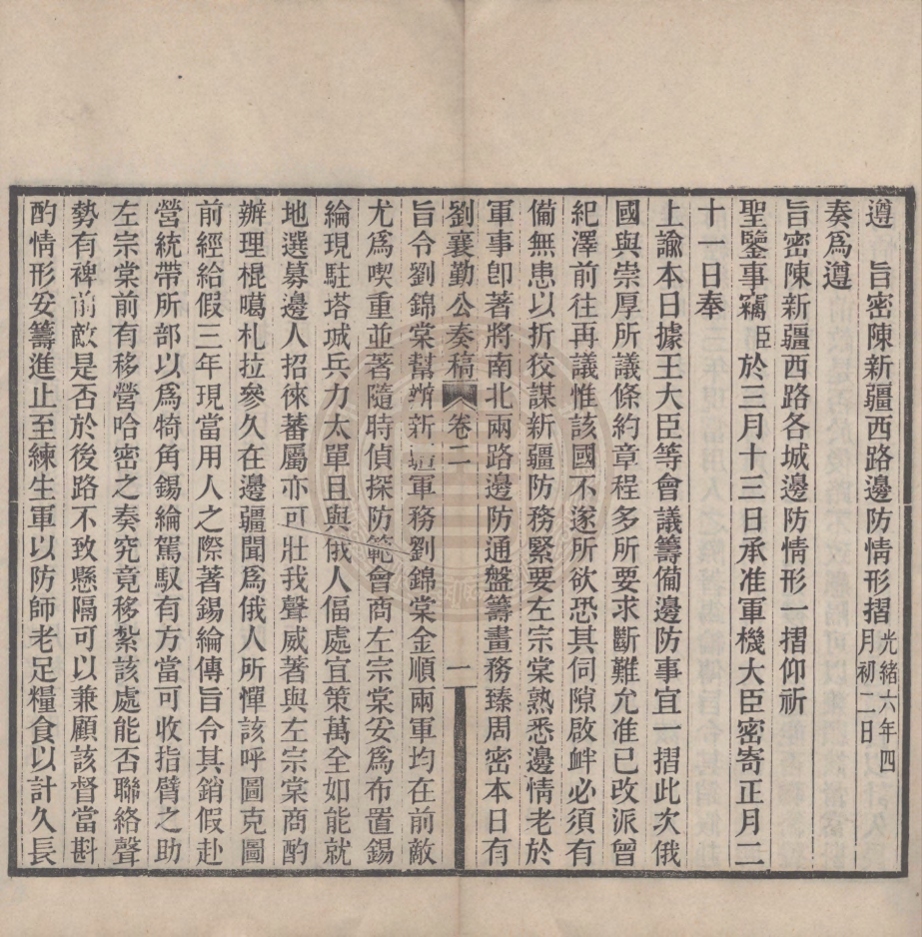 遵　旨密陳新疆西路邊防情形摺光緒六年四月初二日
奏爲遵
旨密陳新疆西路各城邊防情形一摺仰祈
聖鑒事竊臣於三月十三日承准軍機大臣密寄正月二
十一日奉
上諭本日據王大臣等會議籌備邊防事宜一摺此次俄
國與崇厚所議條約章程多所要求斷難允准已改派曾
紀澤前往再議惟該國不遂所欲恐其伺隙啟衅必須有
備無患以折狡謀新疆防務緊要左宗棠熟悉邊情老於
軍事卽著將南北兩路邊防通盤籌畫務臻周密本日有
劉襄勤公奏稿　卷二　一
旨令劉錦棠幫辦新疆軍務劉錦棠金順兩軍均在前敵
尤爲喫重並著隨時偵探防範會商左宗棠妥爲布置錫
綸現駐塔城兵力太單且與俄人偪處宜策萬全如能就
地選募邊人招徠蕃屬亦可壯我聲威著與左宗棠商酌
辦理棍噶札拉參久在邊疆聞爲俄人所憚該呼圖克圖
前經給假三年現當用人之際著錫綸傳旨令其銷假赴
營統帶所部以爲犄角錫綸駕馭有方當可收指臂之助
左宗棠前有移營哈密之奏究竟移紮該處能否聯絡聲
勢有裨前敵是否於後路不致懸隔可以兼顧該督當斟
酌情形妥籌進止至練生軍以防師老足糧食以計久長